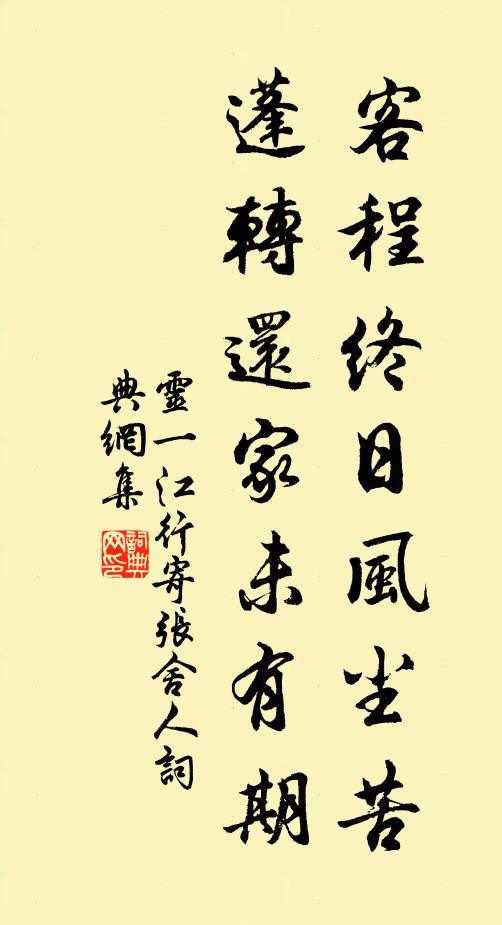 客程終日風尘苦
蓬轉還家未有期
靈一江行寄張舍人詞
典網集
詞典
网印